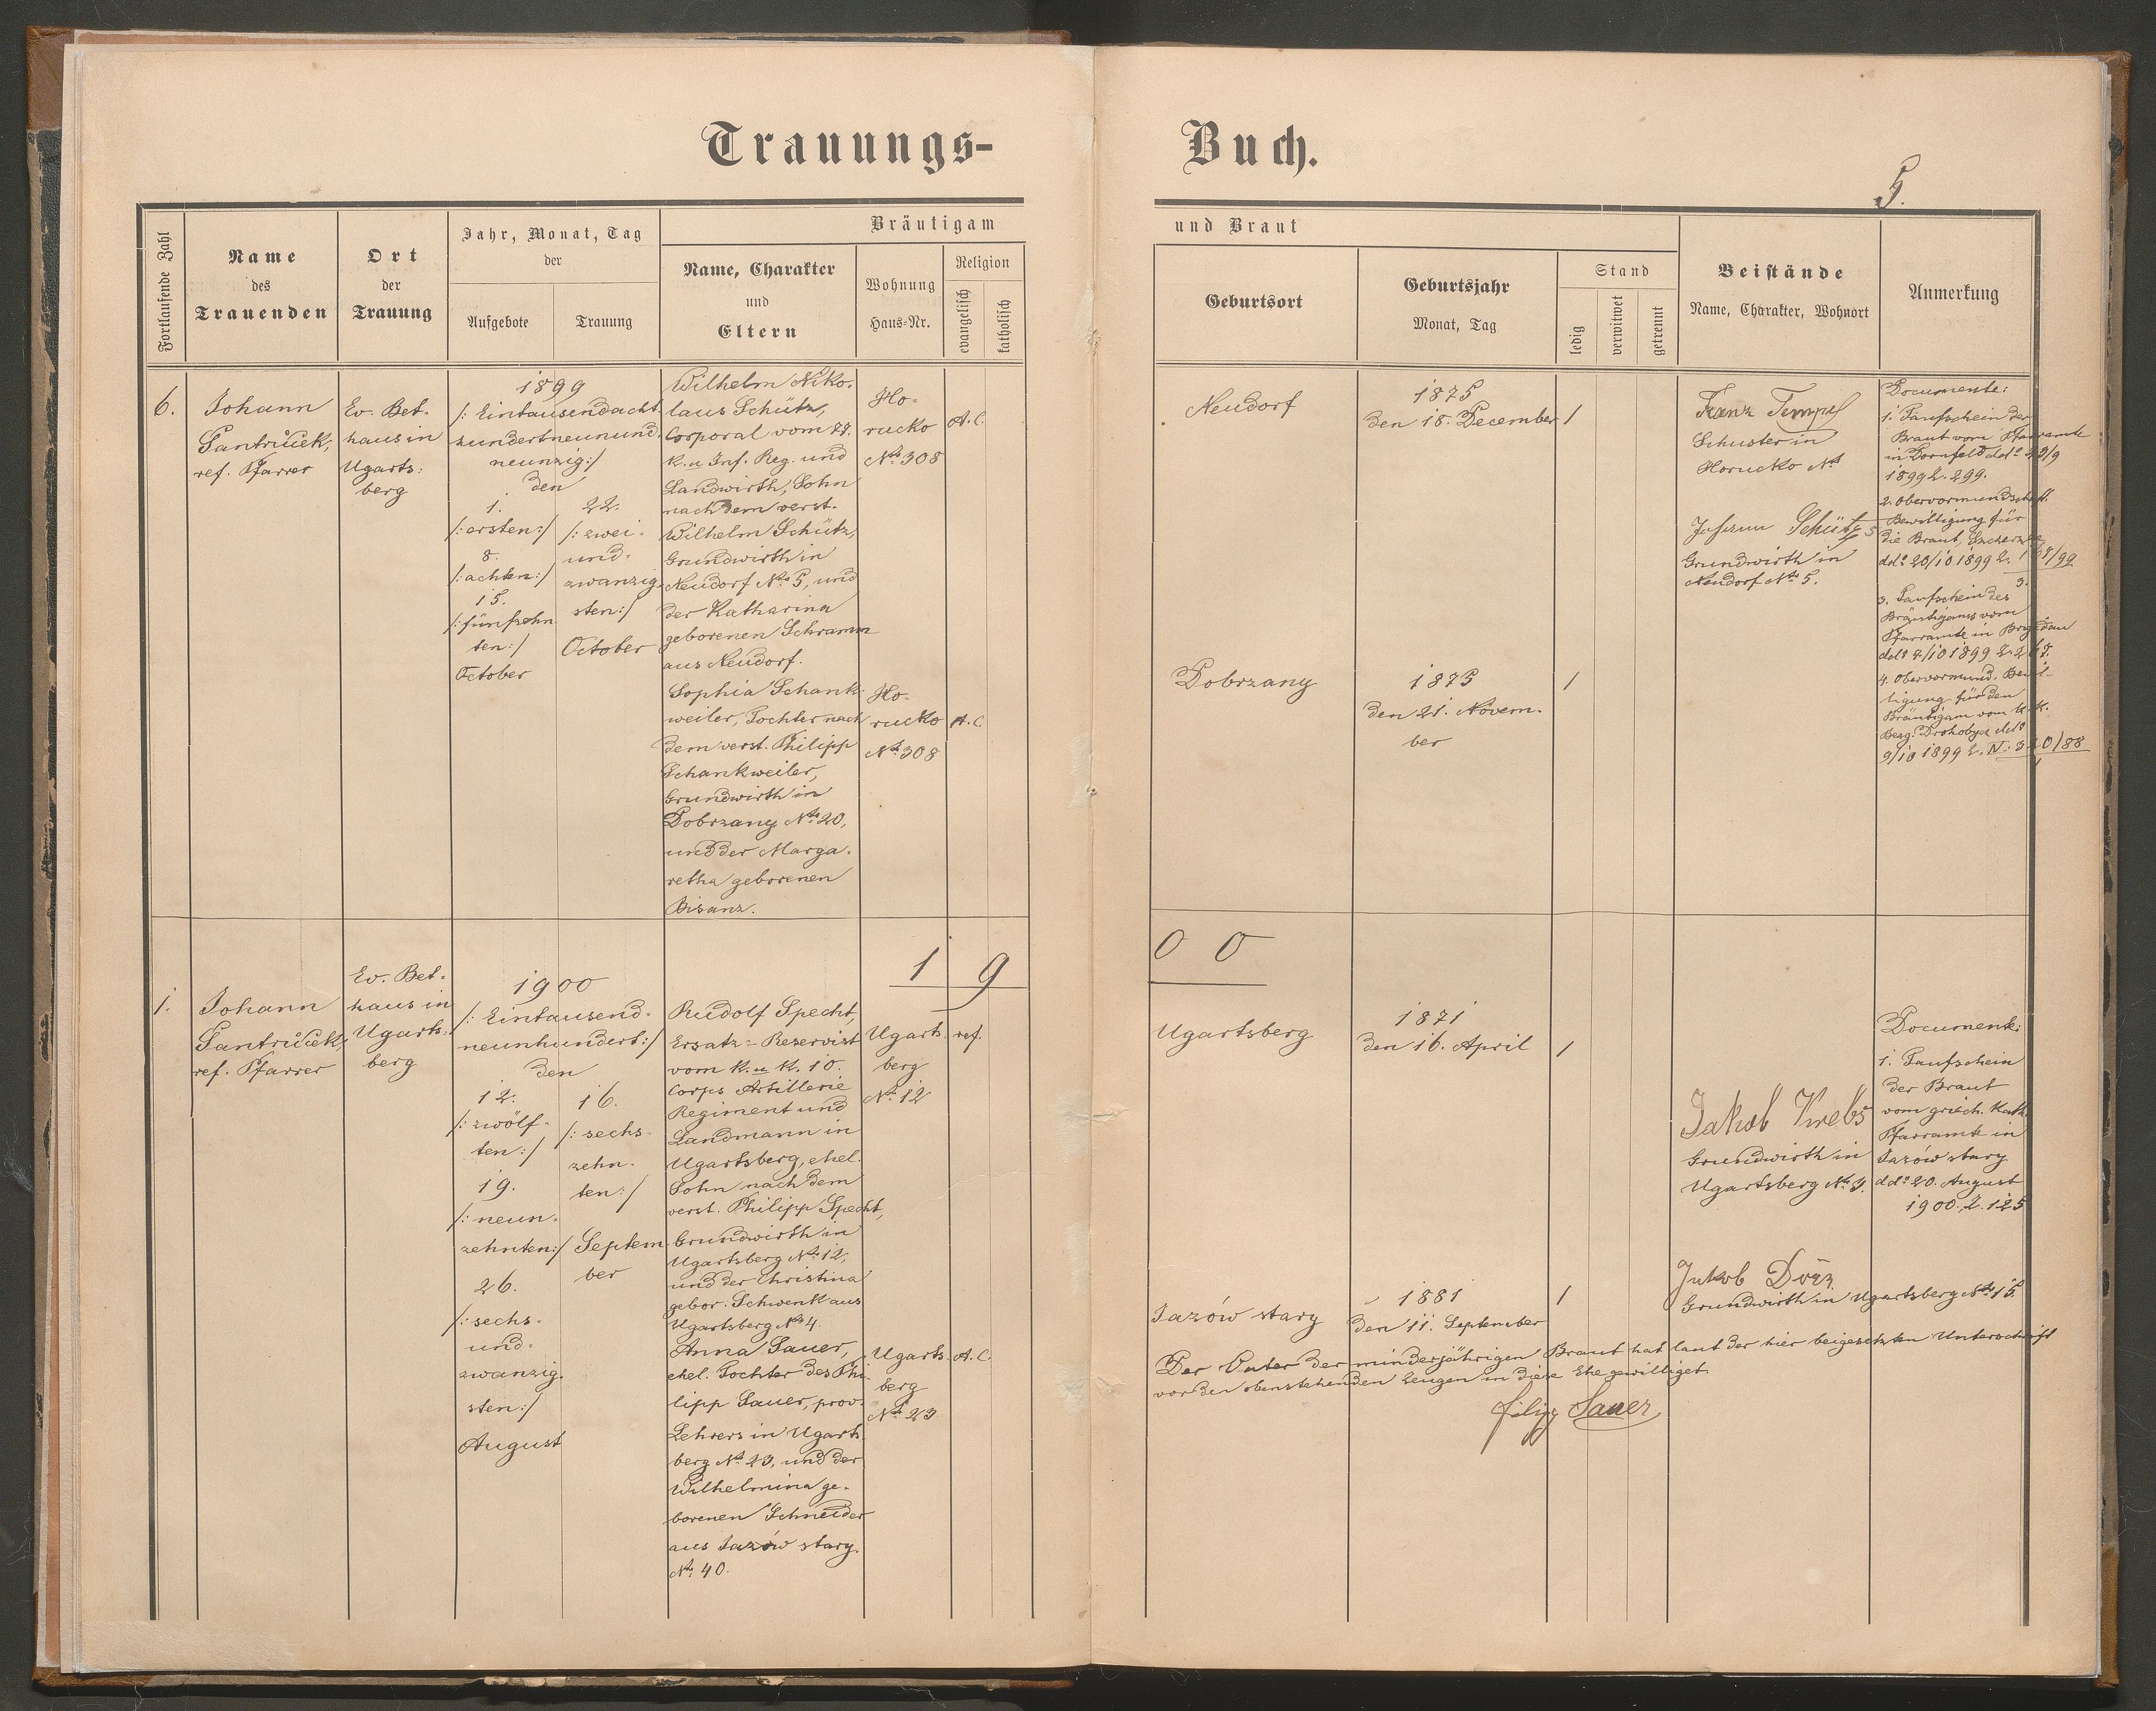 Trauungs-
Buch.
5.
Fortlaufende Zahl
Name
des
Trauenden
Ort
der
Trauung
Jahr, Monat, Tag
der
Aufgebote
Trauung
Bräutigam
Name, Charakter
und
Eltern
Wohnung
Haus-Nr.
Religion
evangelisch
katholisch
und Braut
Geburtsort
Geburtsjahr
Monat, Tag
Stand
ledig
verwitwet
getrennt
Beistände
Name, Charakter, Wohnort
Anmerkung
6.
Johann
Pantrůček,
ref. Pfarrer
Ev. Bet-
haus in
Ugarts:
berg
1899
/: Eintausendacht
hundertneunund.
neunzig:/
den
1.
/:ersten:/
8.
/:achten:/
15.
/:fünfzehn
ten:/
October
22.
/:zwei-
und-
zwanzig.
sten:/
October
Wilhelm Niko-
laus Schütz,
Corporal vom 77.
k. u Inf. Reg. und
Landwirth, Sohn
nach dem verst.
Wilhelm Schütz,
Grundwirth in
Neudorf No 5, und
der Katharina
geborenen Schramm
aus Neudorf.
Ho-
rucko
No 308
A. C.
Sophia Schank-
weiler, Tochter nach
dem verst. Philipp
Schankweiler,
Grundwirth in
Dobrzany No 20,
und der Marga-
retha geborenen
Bisanz.
Ho-
rucko
No 308
A. C.
Neudorf
1875
den 18. December
1
Dobrzany
1875
den 21. Novem-
ber
1
Franz Tempel
Schuster in
Horucko No
Johann Schütz
Grundwirth in
Neudorf No 5.
Documente:
1. Taufschein der
Braut vom Pfarramte
in Dornfeld ddo
1899 Z. 299.
2. Obervormundschaft.
Bewilligung für
die Braut,
ddo 20/10 1899 Z.
3. Taufschein des
Bräutigams vom
Pfarramte in Brigidau
ddo 7/10 1899 Z.
4. Obervormund. Bewil-
ligung für den
Bräutigam vom k. k.
Berg. Drohobycz ddo
9/10 1899 Z. IV.
19
00
1.
Johann
Pantrůček,
ref. Pfarrer
Ev. Bet-
haus in
Ugarts:
berg
1900
/: Eintausend-
neunhundert:/
den
12.
/:zwölf-
ten:/
19.
/:neun-
zehnten:/
26.
/:sechs-
und-
zwanzig.
sten:/
August
16.
/:sechs-
zehn-
ten:/
Septem-
ber
Rudolf Specht,
Ersatz-Reservist
vom k. u k. 10.
Corps Artillerie
Regiment und
Landmann in
Ugartsberg, ehel.
Sohn nach dem
verst. Philipp Specht,
Grundwirth in
Ugartsberg No 12,
und der Christina
gebor. Schwenk aus
Ugartsberg No 4.
Ugarts
berg
No 12
ref.
Anna Sauer,
ehel. Tochter des Phi-
lipp Sauer, prov.
Lehrers in Ugarts
berg No 23, und der
Wilhelmina ge-
borenen Schneider
aus Jazów stary.
No 40.
Ugarts
berg
No 23
A. C.
Ugartsberg
1871
den 16. April
1
Jazów stary
1881
den 11. September
1
Jakob Krebs
Grundwirth in
Ugartsberg No 3.
Jakob Dörr
Grundwirth in Ugartsberg No 15.
Documente:
1. Taufschein
der Braut
vom griech. kath.
Pfarramte in
Jazów stary
ddo 20. August
1900, Z. 125
Der Vater der minderjährigen Braut hat laut der hier beigesetzten Unterschrift
vor den obenstehenden Zeugen in diese Ehe gewilliget.
Filipp Sauer